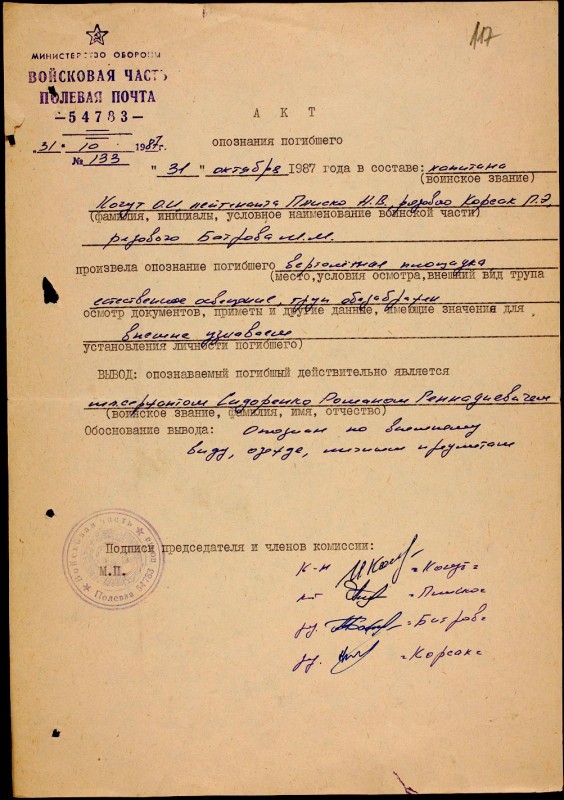 117
МИНИСТЕРСТВО ОБОРОНЫ
ВОЙСКОВАЯ ЧАСТЬ
ПОЛЕВАЯ ПОЧТА
—54783—
"31" 10 1987г.
№ 133
АКТ
опознания погибшего
"31" октября 1987 года в составе: капитана
(воинское звание)
Когут О.И лейтенанта Плиско Н.В., рядового Корсак П.Э.
(фамилия, инициалы, условное наименование воинской части)
рядового Батрова М.М.
произвела опознание погибшего вертолетная площадка
(место,условия осмотра,внешний вид трупа
естественное освещение, труп обезображен
осмотр документов, приметы и другие данные, имеющие значения для
внешне узнаваем
установления личности погибшего)
ВЫВОД: опознаваемый погибшый действительно является
мл.сержантом Сидоренко Романом Геннадиевичем
(воинское звание, фамилия, имя, отчество)
Обоснование вывода: Опознан по внешнему
виду, одежде, личным приметам
Подписи председателя и членов комиссии:
М.П.
Войсковая часть
Полевая 54783
к-н =Когут=
лт =Плиско=
ря. =Батров=
ря. =Корсак=